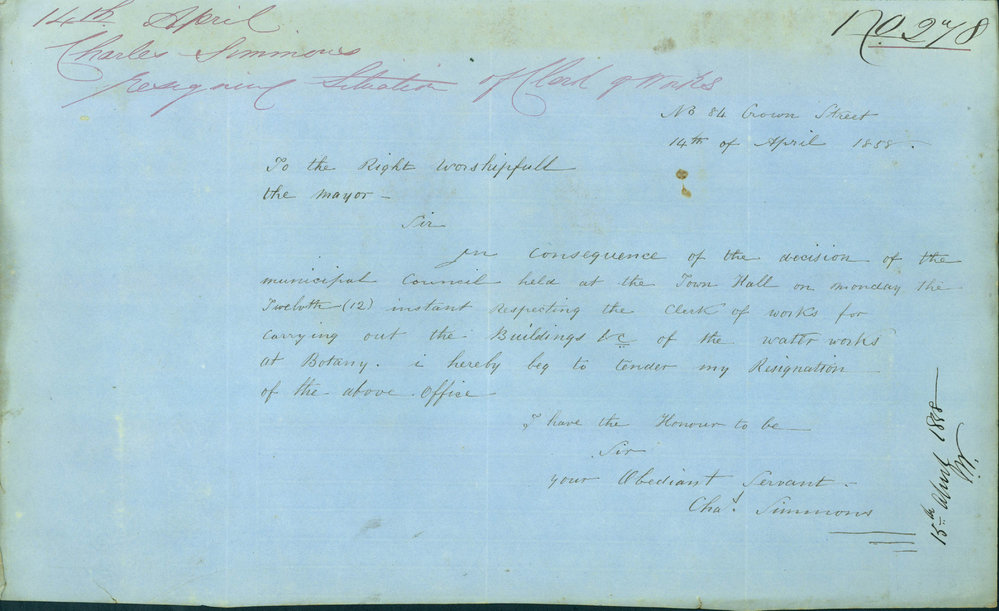 14th April
Charles Simmons
resigning Situation of Clerk of Works
No 278
No 84 Crown Street
14th of April 1858.
To the Right Worshipfull
the mayor -
Sir
In Consequence of the decision of the
municipal Council held at the Town Hall on monday the
Twelvth (12) instant Respecting the Clerk of works for
carrying out the Buildings &c of the water works
at Botany. i hereby beg to tender my Resignation
of the above office
I have the Honour to be
Sir
your Obediant Servant -
Chas. Simmons
15th April 1858